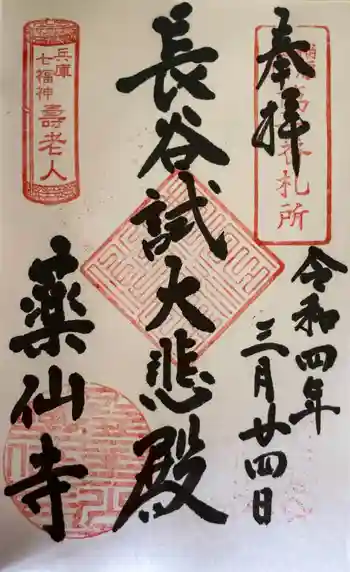 奉拝
令和四年
三月廿四日
長谷試大悲殿
兵庫
七福神
壽老人
薬仙寺
札所